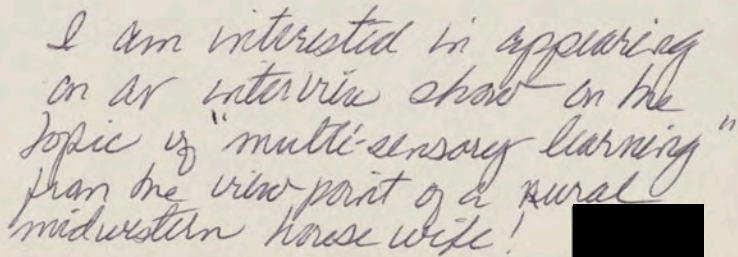 I am interested in appearing
on an interview show on the
topic of "multi-sensory learning"
from the view point of a rural
midwestern house wife!